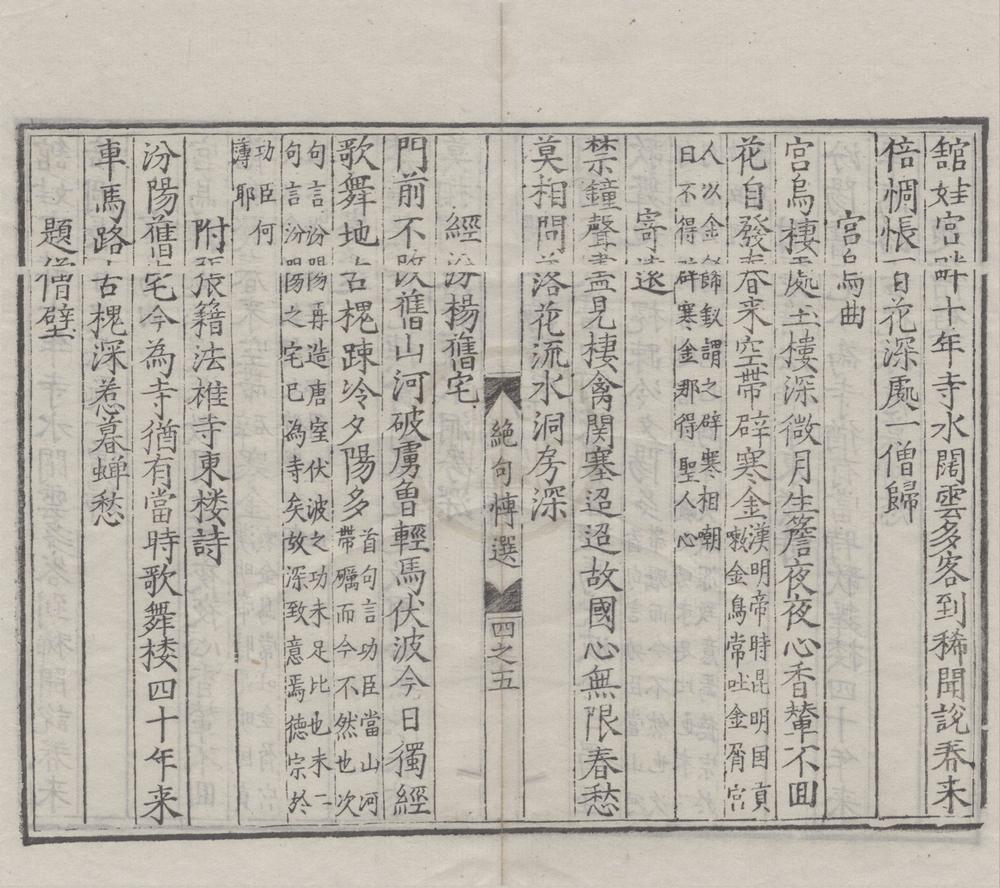 舘娃宮畔十年寺水闊雲多客到稀聞說春来
倍惆悵百花深處一僧歸
宮烏曲
宮烏棲處玉樓深微月生簷夜夜心香輦不囬
花自發春来空帶辟寒金漢明帝時昆明国貢
嗽金鳥常吐金屑宮
人以金飾釵謂之辟寒相嘲
曰不得辟寒金那得聖人心
寄遠
禁鐘聲盡見棲禽関塞迢迢故國心無限春愁
莫相問落花流水洞房深
經汾楊舊宅
絶句慱選
四之五
門前不改舊山河破虜曾輕馬伏波今日獨經
歌舞地古槐踈冷夕陽多首句言功臣當山河
帶礪而今不然也次
句言汾陽再造唐室伏波之功未足比也末二
句言汾陽之宅已為寺矣故深致意焉德宗於
功臣何
薄耶
附張籍法雄寺東楼詩
汾陽舊宅今為寺猶有當時歌舞楼四十年来
車馬路古槐深惹暮蝉愁
題僧壁